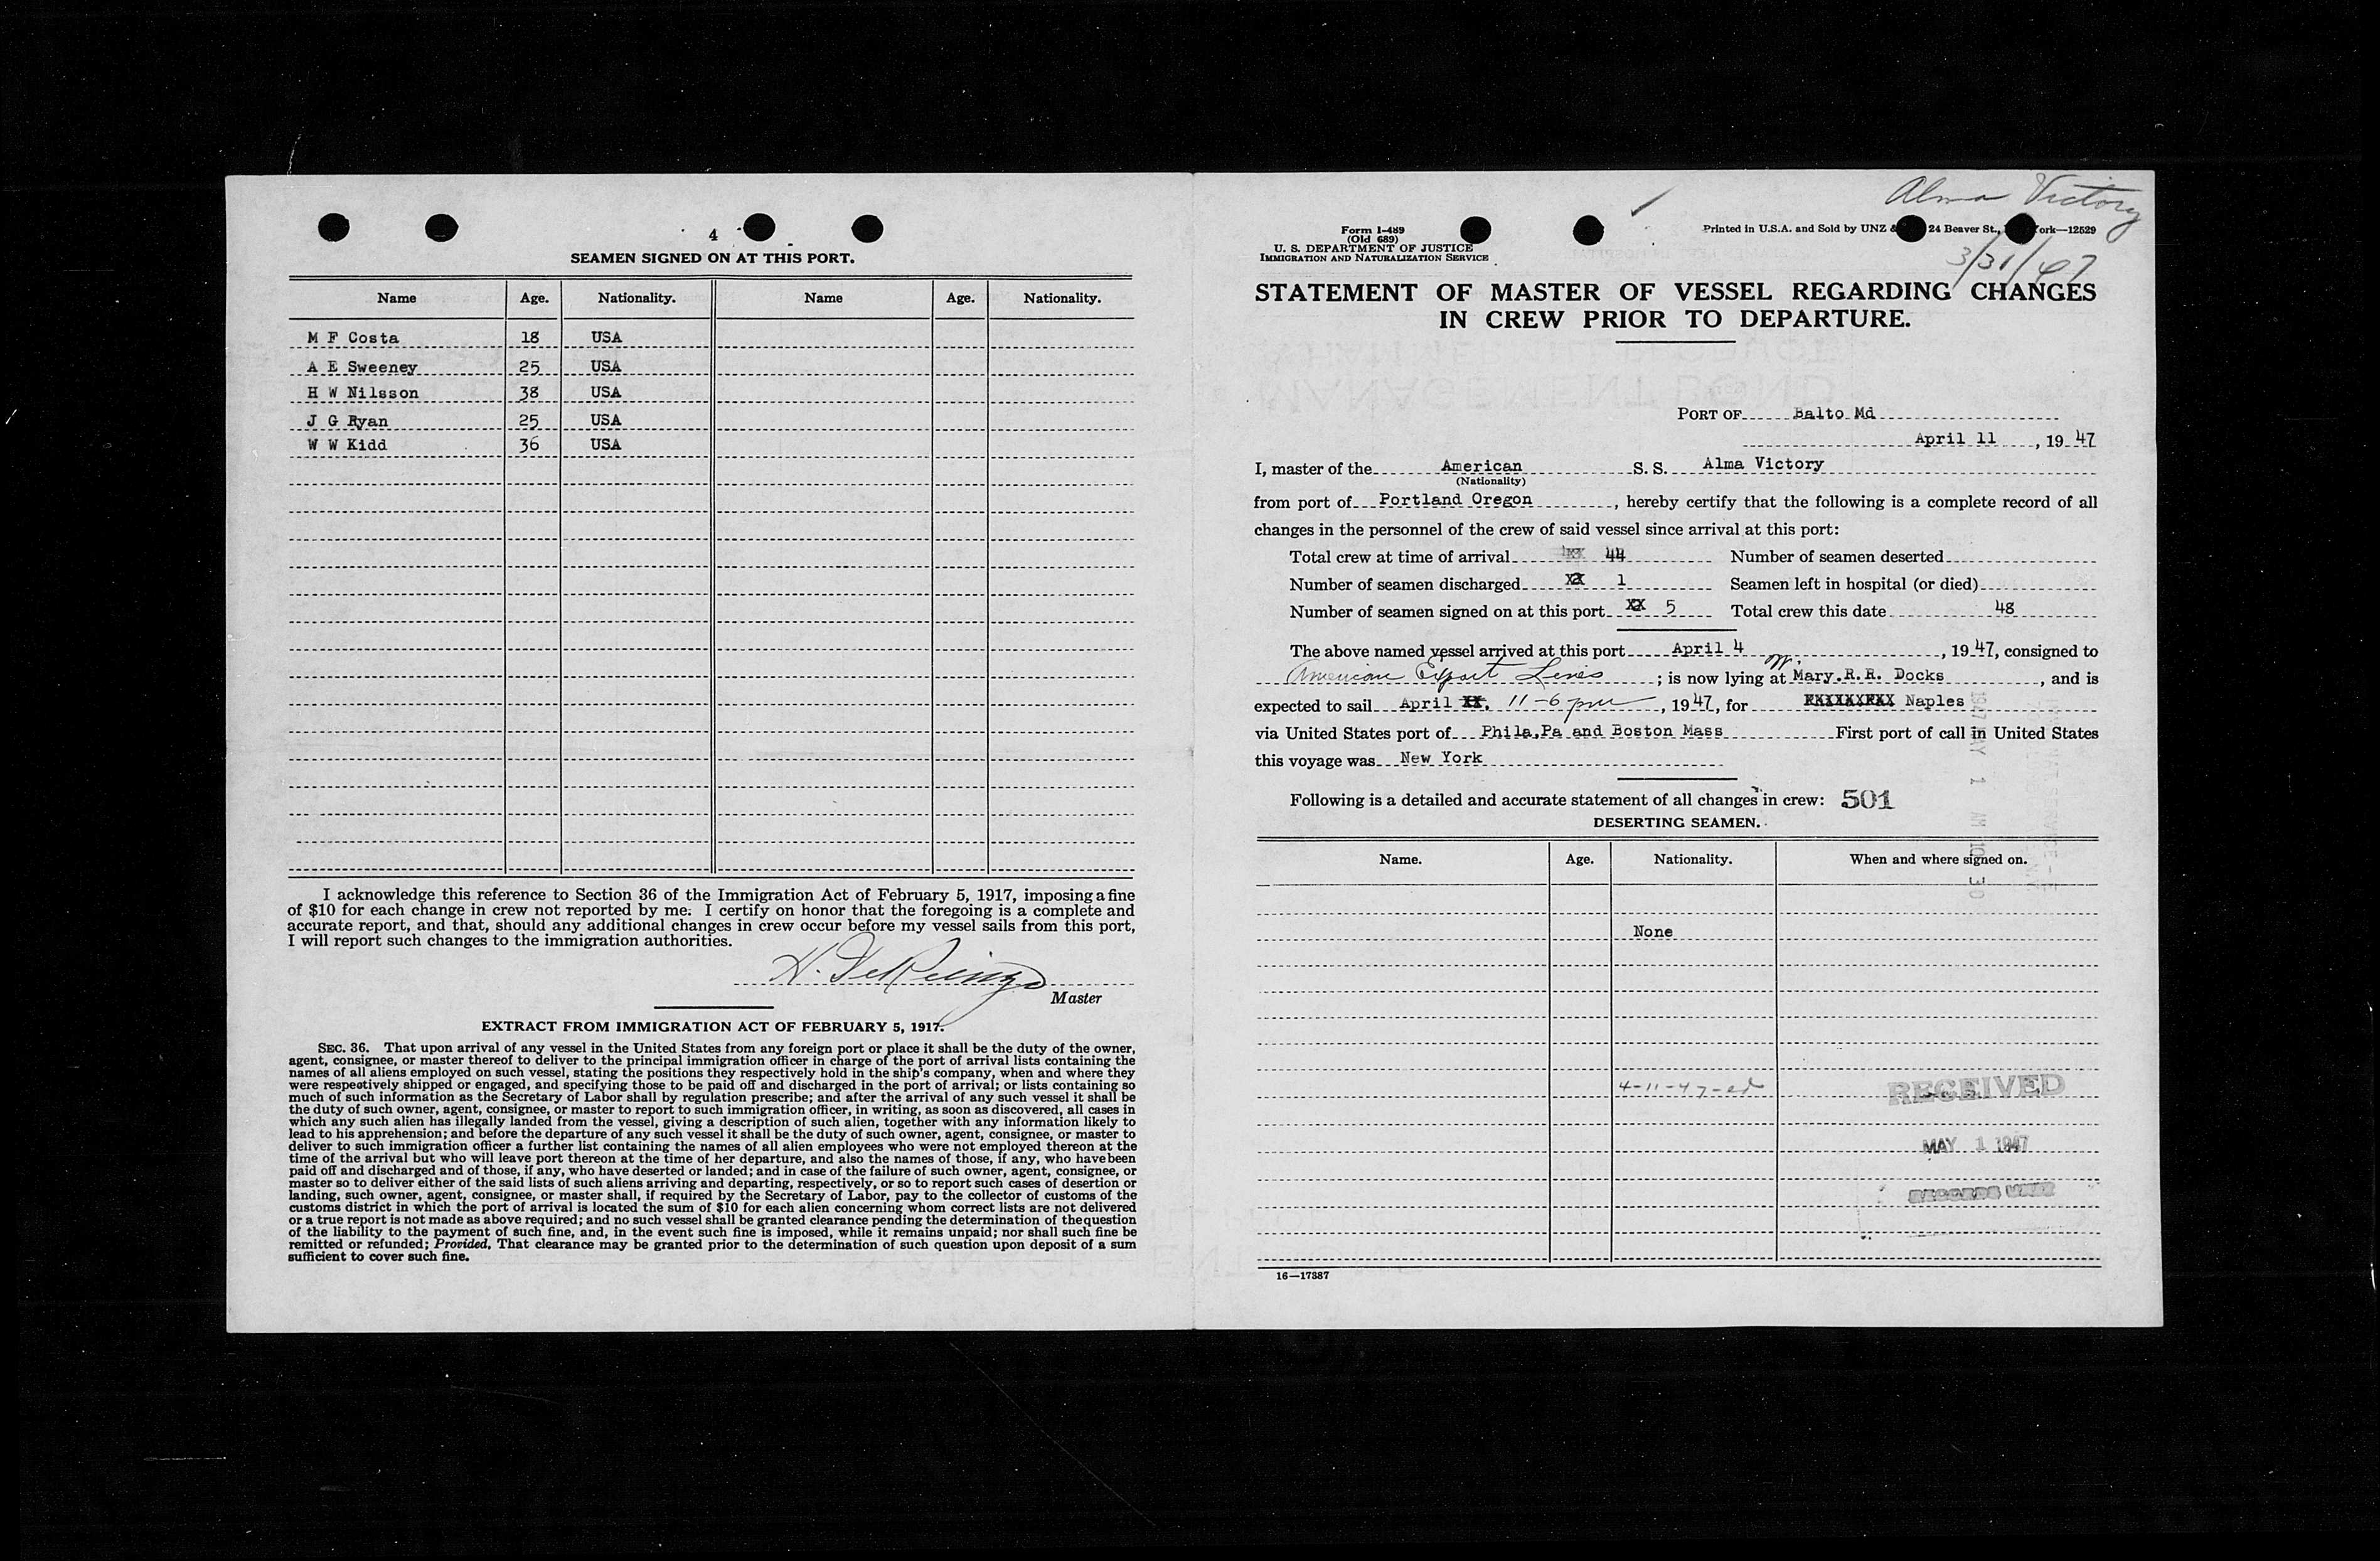 4
SEAMEN SIGNED ON AT THIS PORT.
Name Age. Nationality. Name Age. Nationality.
M F Costa 18 USA
A E Sweeney 25 USA
H W Nilsson 38 USA
J G Ryan 25 USA
W W Kidd 36 USA
I acknowledge this reference to Section 36 of the Immigration Act of February 5, 1917, imposing a fine
of $10 for each change in crew not reported by me. I certify on honor that the foregoing is a complete and
accurate report, and that, should any additional changes in crew occur before my vessel sails from this port,
I will report such changes to the immigration authorities.
Master
EXTRACT FROM IMMIGRATION ACT OF FEBRUARY 5, 1917.
SEC. 36. That upon arrival of any vessel in the United States from any foreign port or place it shall be the duty of the owner,
agent, consignee, or master thereof to deliver to the principal immigration officer in charge of the port of arrival lists containing the
names of all aliens employed on such vessel, stating the positions they respectively hold in the ship's company, when and where they
were respectively shipped or engaged, and specifying those to be paid off and discharged in the port of arrival; or lists containing so
much of such information as the Secretary of Labor shall by regulation prescribe; and after the arrival of any such vessel it shall be
the duty of such owner, agent, consignee, or master to report to such immigration officer, in writing, as soon as discovered, all cases in
which any such alien has illegally landed from the vessel, giving a description of such alien, together with any information likely to
lead to his apprehension; and before the departure of any such vessel it shall be the duty of such owner, agent, consignee, or master to
deliver to such immigration officer a further list containing the names of all alien employees who were not employed thereon at the
time of the arrival but who will leave port thereon at the time of her departure, and also the names of those, if any, who have been
paid off and discharged and of those, if any, who have deserted or landed; and in case of the failure of such owner, agent, consignee, or
master so to deliver either of the said lists of such aliens arriving and departing, respectively, or so to report such cases of desertion or
landing, such owner, agent, consignee, or master shall, if required by the Secretary of Labor, pay to the collector of customs of the
customs district in which the port of arrival is located the sum of $10 for each alien concerning whom correct lists are not delivered
or a true report is not made as above required; and no such vessel shall be granted clearance pending the determination of the question
of the liability to the payment of such fine, and, in the event such fine is imposed, while it remains unpaid; nor shall such fine be
remitted or refunded; Provided, That clearance may be granted prior to the determination of such question upon deposit of a sum
sufficient to cover such fine.
Alma Victory
3/31/47
Form I-489
(Old 689)
U. S. DEPARTMENT OF JUSTICE
IMMIGRATION AND NATURALIZATION SERVICE
Printed in U.S.A. and Sold by UNZ & 24 Beaver St., ork—12529
STATEMENT OF MASTER OF VESSEL REGARDING CHANGES
IN CREW PRIOR TO DEPARTURE.
PORT OF Balto Md
April 11, 1947
I, master of the American S. S. Alma Victory
(Nationality)
from port of Portland Oregon, hereby certify that the following is a complete record of all
changes in the personnel of the crew of said vessel since arrival at this port:
Total crew at time of arrival 44 Number of seamen deserted
Number of seamen discharged 1 Seamen left in hospital (or died)
Number of seamen signed on at this port XX 5 Total crew this date 48
The above named vessel arrived at this port April 4, 1947, consigned to
American Export Lines; is now lying at W. Mary.R.R. Docks, and is
expected to sail April XX. 11-6 pm, 1947, for Naples
via United States port of Phila.Pa and Boston Mass First port of call in United States
this voyage was New York
Following is a detailed and accurate statement of all changes in crew: 501
DESERTING SEAMEN.
Name. Age. Nationality. When and where signed on.
None
4-11-47-ed
RECEIVED
MAY 1 1947
RECORDS UNIT
16—17887
1947 MAY 1 AM 10 30